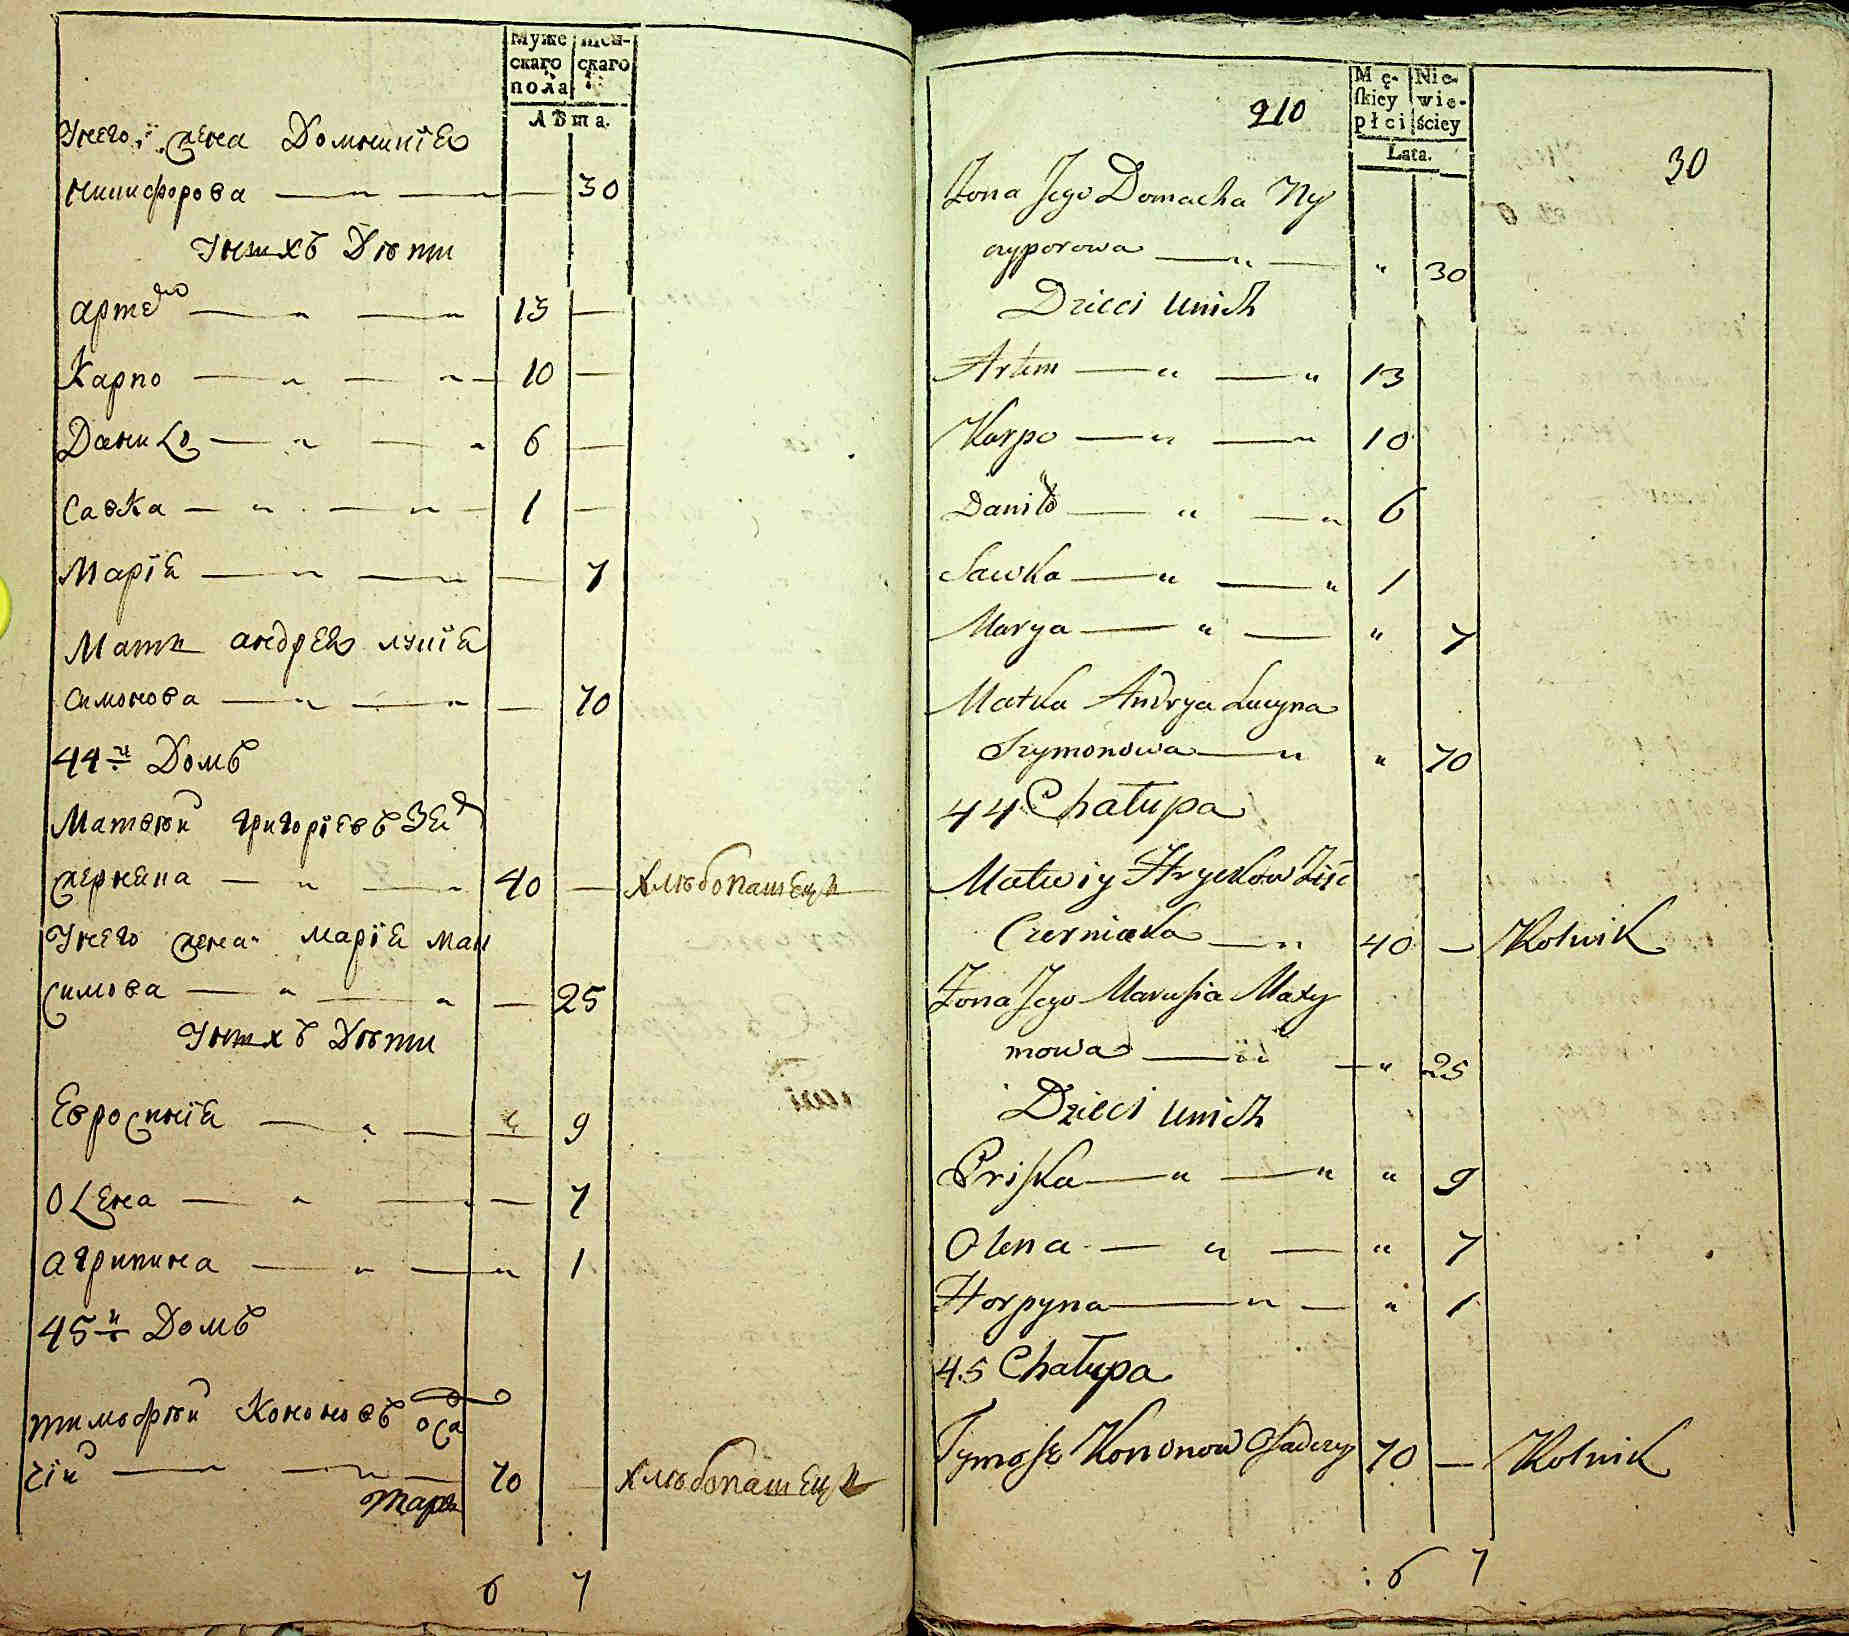 Муже скаго пола
женскаго
Лѣта.
Унего жена Домникіѧ
никифорова — „ — — 30
Унихъ Дѣти
артем — „ — „ 13 —
Карпо — „ — „ — 10 —
Данило — „ — „ 6 —
Савка — „ — „ — 1 —
Маріѧ — „ — „ — 7
Мати андреѧ лукіѧ
симонова — „ — „ — 70
44й Домъ
Матвѣй григоріевъ Зѧ
черняка — „ — „ 40 — хлѣбопашецъ
Унего жена маріѧ мак
симова — „ — „ — 25
Унихъ Дѣти
Евросиніѧ — „ — — 9
Олена — „ — — 7
агрипина — „ — „ 1
45й Домъ
тимофѣй Кононовъ оса
чій — „ — „ — 70 — хлѣбопашецъ
6 7
Mę-skiey płci
Nie-wie-ściey
Lata.
210
30
Żona Jego Domacha Ny
czyporowa — „ — „ 30
Dzieci unich
Artem — „ — „ 13
Karpo — „ — „ 10
Daniło — „ — „ 6
Sawka — „ — „ 1
Marya — „ — „ 7
Matka Andrya Lucyna
Szymonowa — „ „ 70
44 Chałupa
Matwiy Hryckow Zięć
Czerniaka — „ 40 — Rolnik
Żona Jego Marusia Maxy
mowa — „ — „ 25
Dzieci unich
Priska — „ — „ „ 9
Olena — „ — „ 7
Horpyna — „ — „ 1
45 Chałupa
Tymosz Kononow Osadczy 70 — Rolnik
6 7